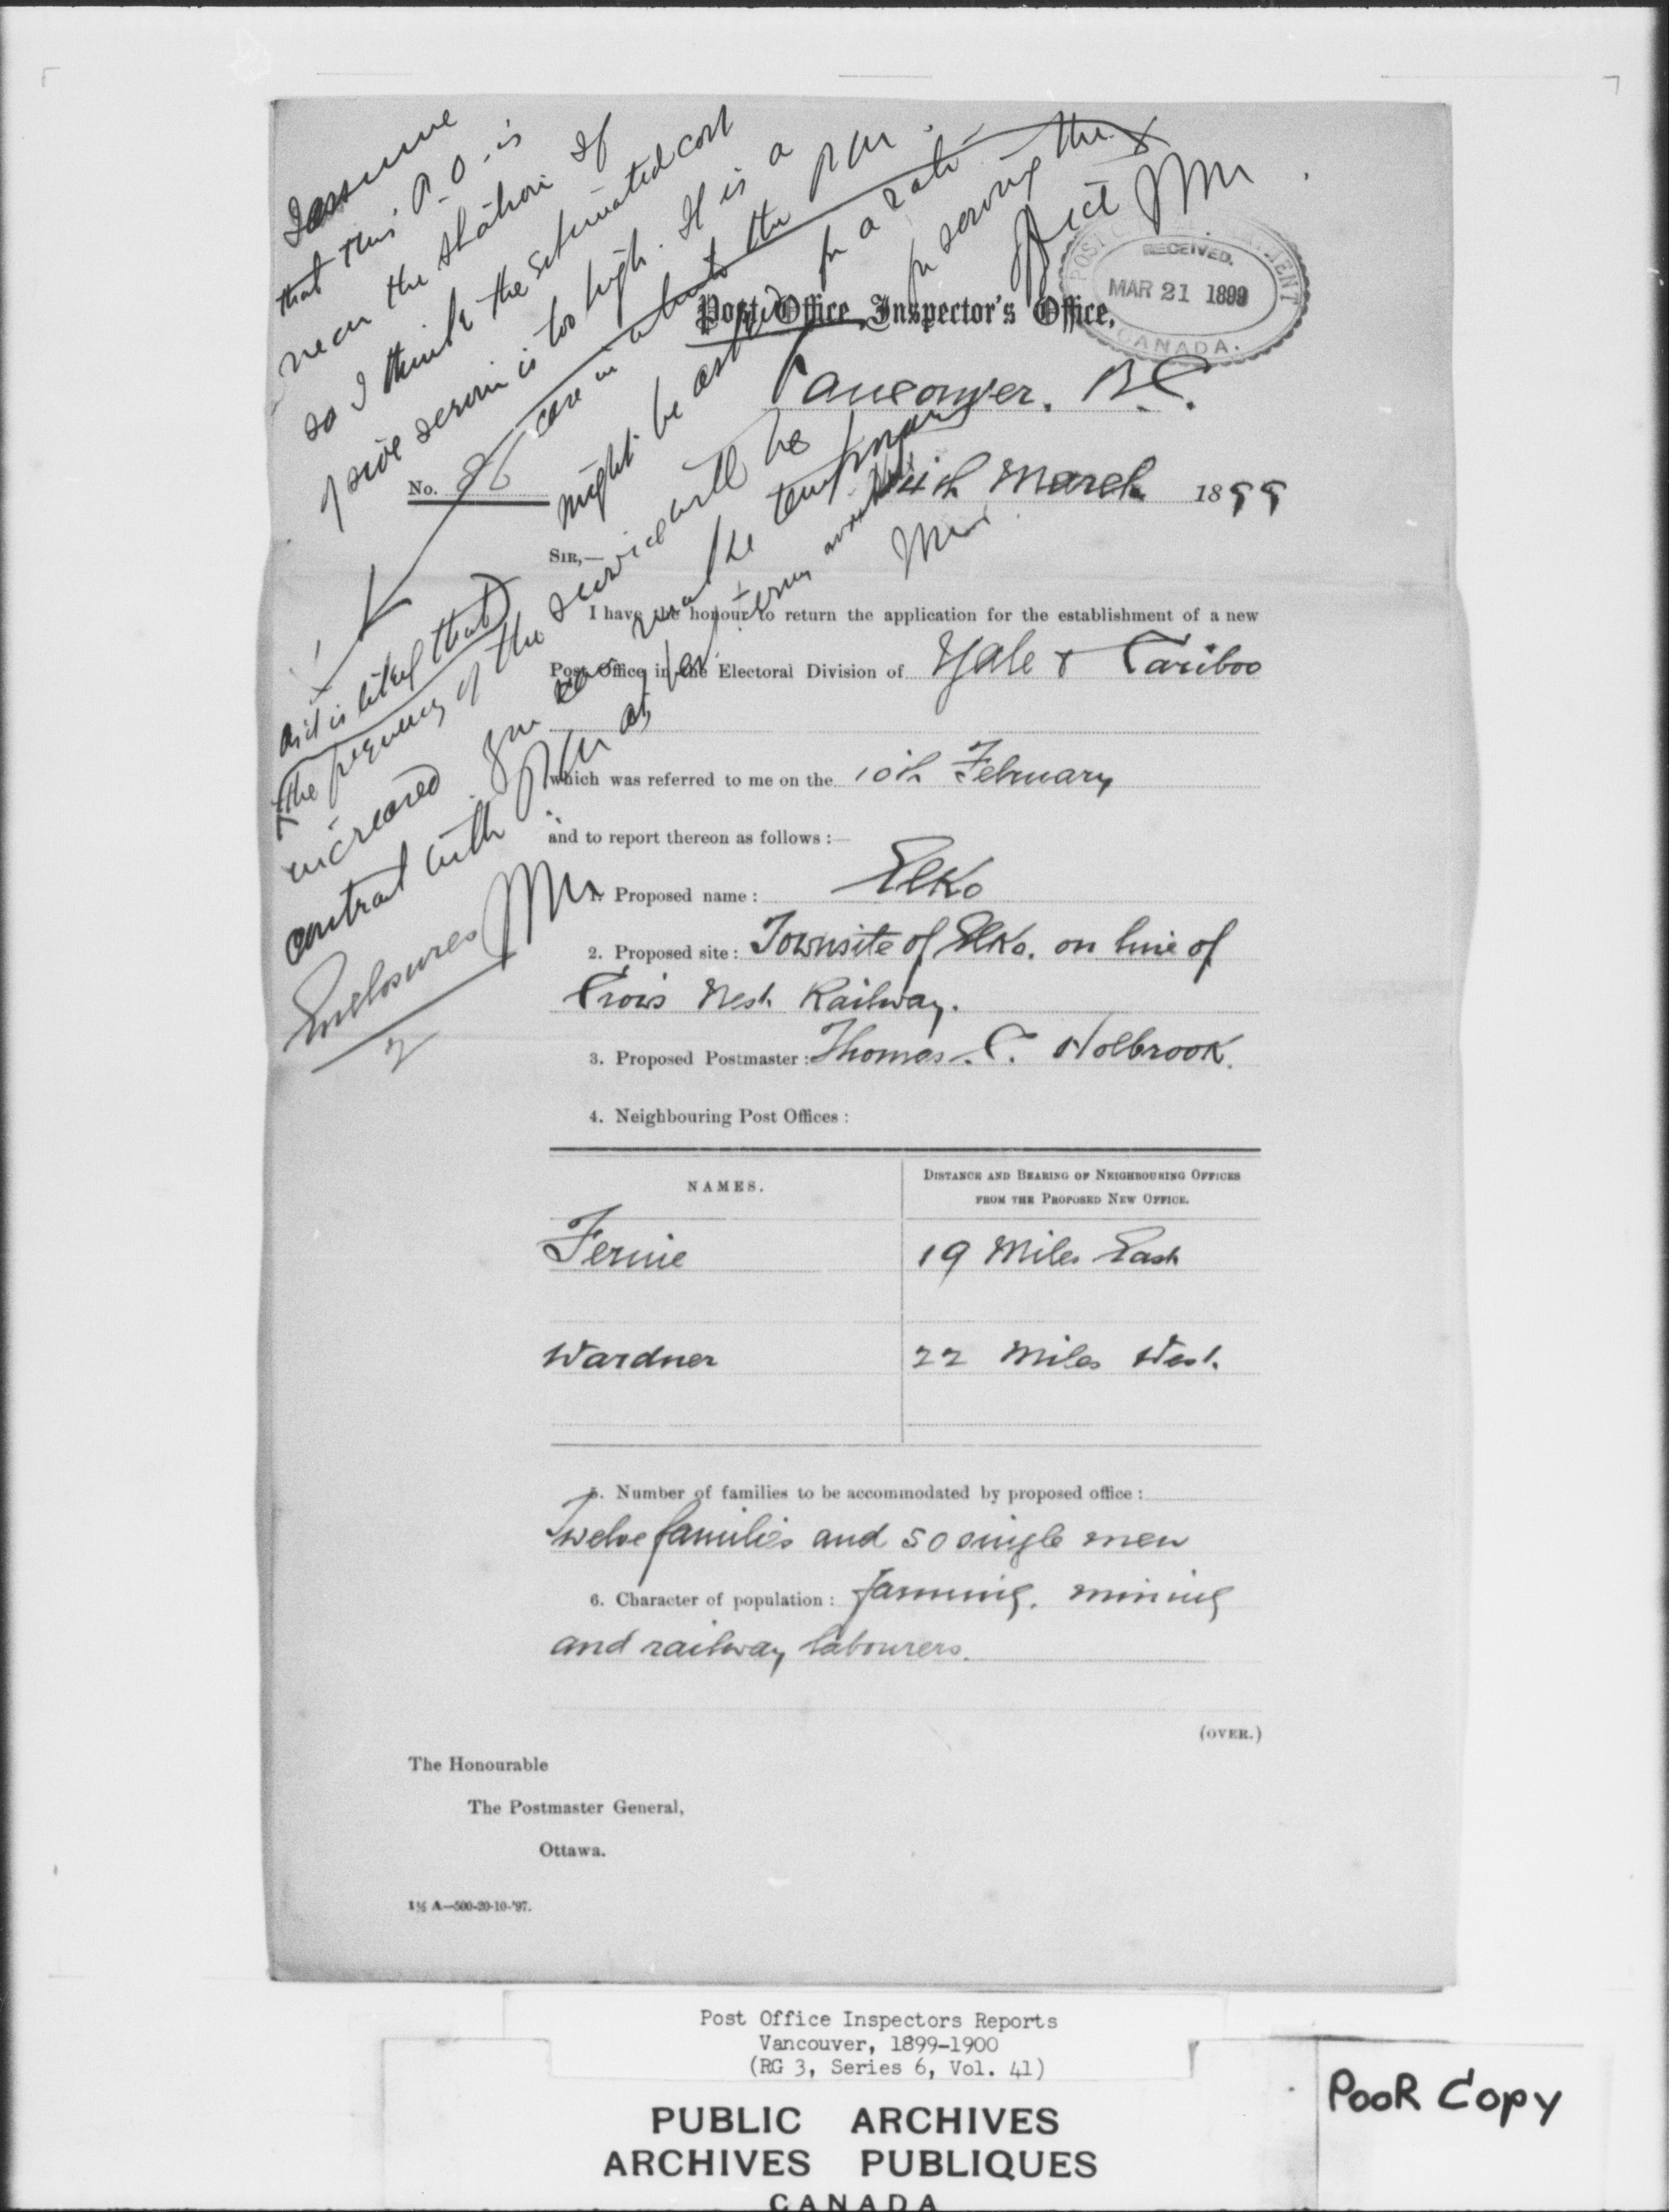 I assume
that this P.O. is
near the station If
so I think the estimated cost
of side service is too high. It is a
case in which the P.M.
might be asked for a rate
for serving the
office
POST OFFICE DEPARTMENT
RECEIVED.
MAR 21 1899
CANADA.
Post Office Inspector's Office,
Vancouver. B.C.
No. 86
14th March 1899
SIR,—
I have the honour to return the application for the establishment of a new
Post Office in the Electoral Division of Yale & Cariboo
which was referred to me on the 10th February
and to report thereon as follows :—
As it is likely that
the frequency of the service will be
increased
contract with P.M.
Enclosures
2
1. Proposed name : Elko
2. Proposed site : Townsite of Elko. on line of
Crow's Nest Railway.
3. Proposed Postmaster : Thomas. C. Holbrook.
4. Neighbouring Post Offices :
NAMES.
DISTANCE AND BEARING OF NEIGHBOURING OFFICES
FROM THE PROPOSED NEW OFFICE.
Fernie 19 Miles East
Wardner 22 Miles West.
5. Number of families to be accommodated by proposed office :
Twelve families and 50 single men
6. Character of population : farming, mining
and railway labourers.
(OVER.)
The Honourable
The Postmaster General,
Ottawa.
1½ A—500-20-10-'97.
Post Office Inspectors Reports
Vancouver, 1899-1900
(RG 3, Series 6, Vol. 41)
PUBLIC ARCHIVES
ARCHIVES PUBLIQUES
CANADA
POOR COPY